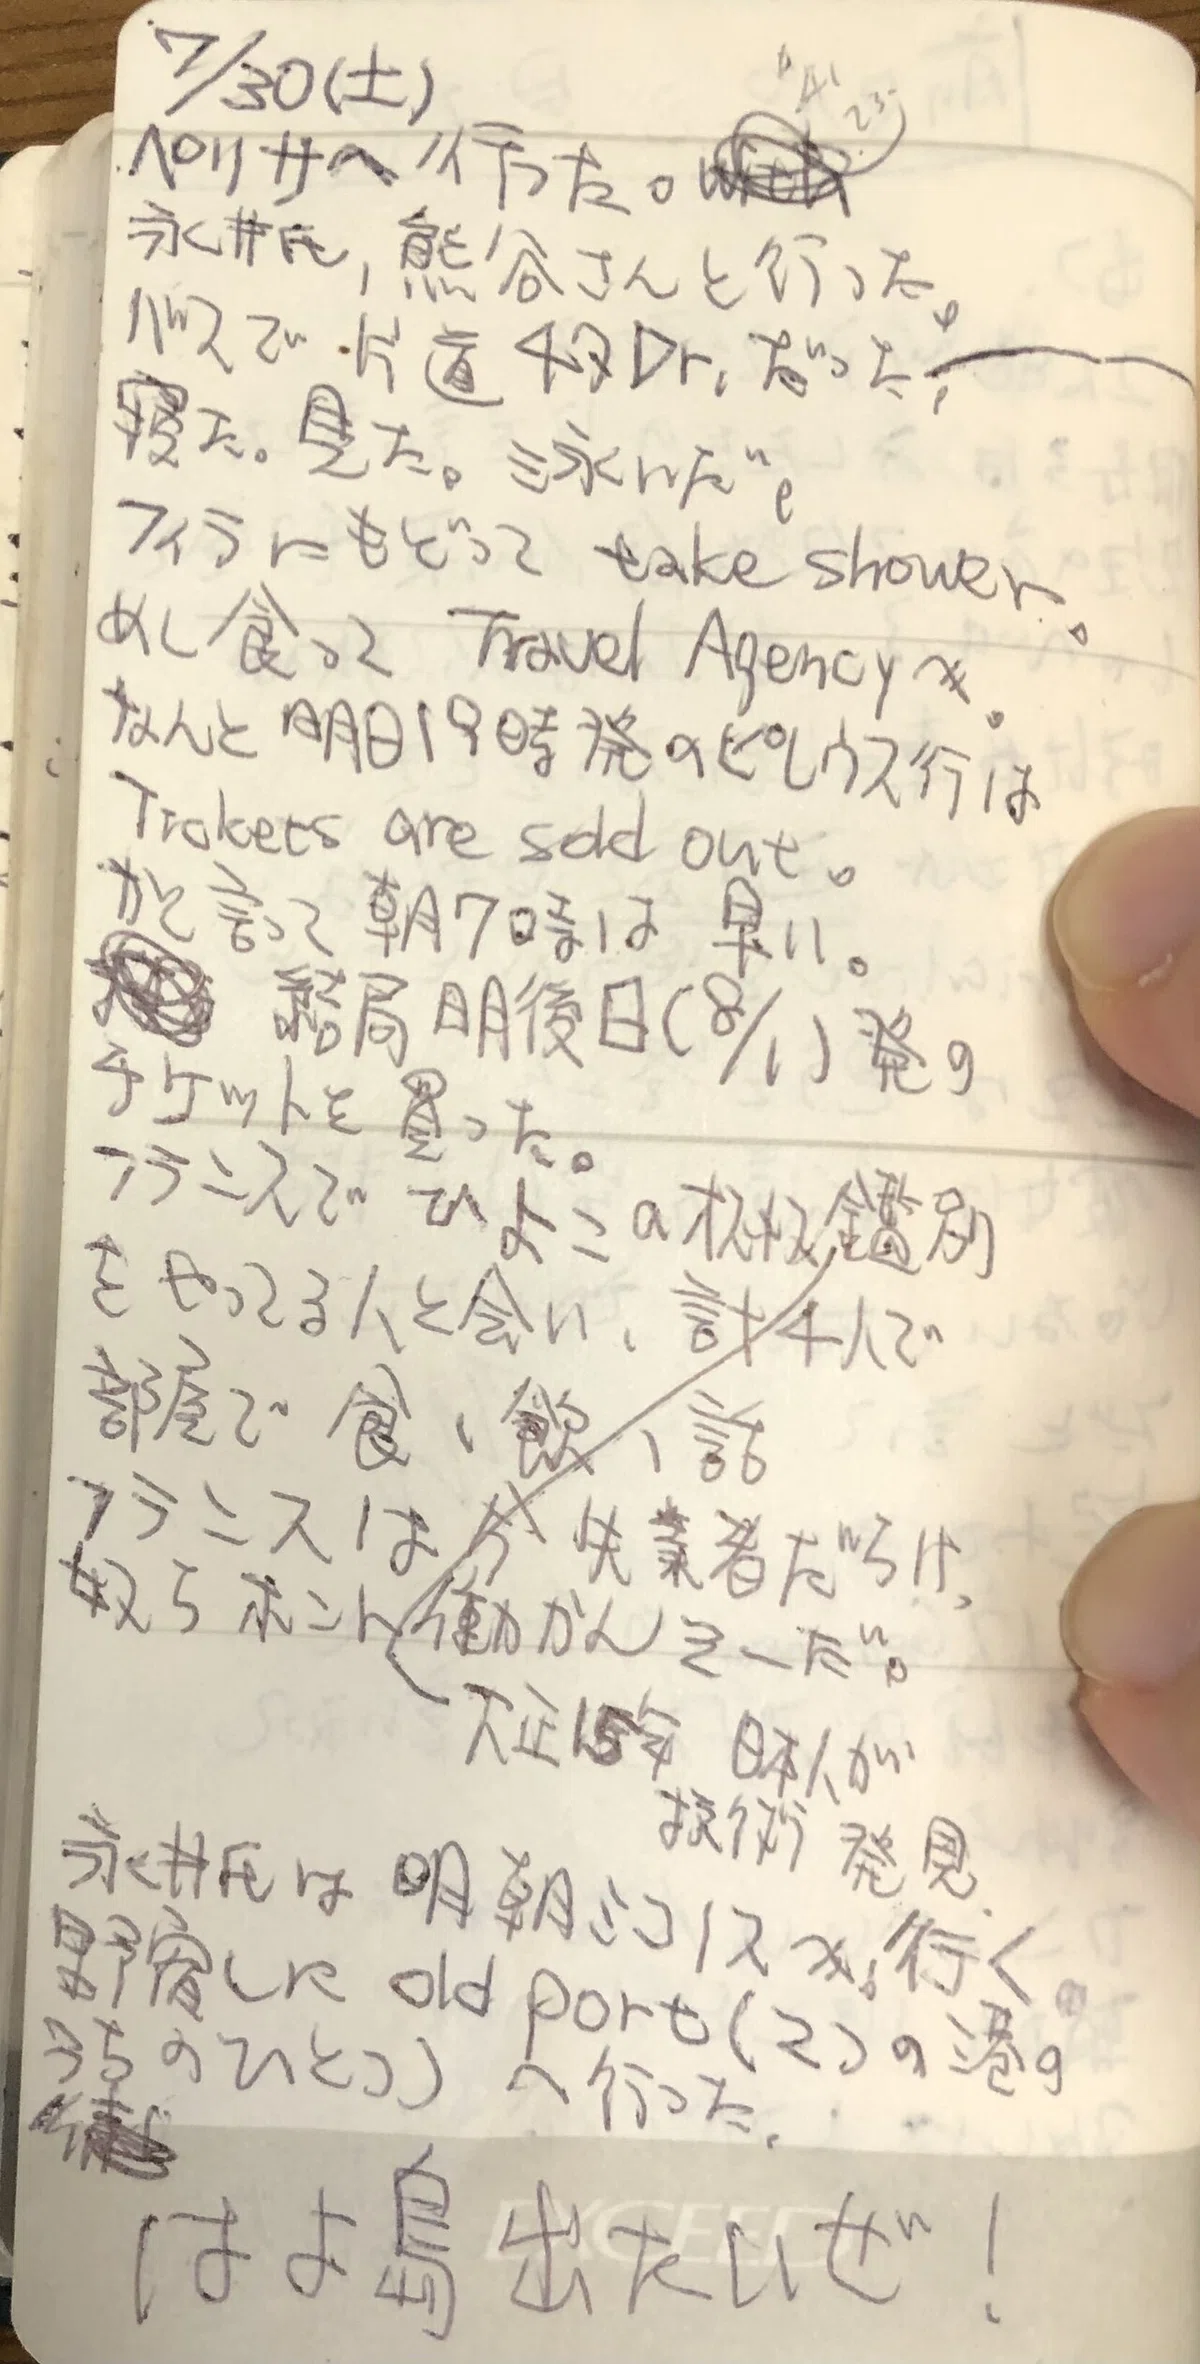 7/30(土)
ペリサへ行った。
永井氏,熊谷さんと行った。
バスで片道 Dr.だった。
寝た。見た。泳いだ。
フィラにもどって take shower.
めし食って Travel Agencyへ。
なんと明日19時発のピレウス行は
Tickets are sold out.
かと言って朝7時は早い。
結局明後日(8/1)発の
チケットを買った。
フランスでひよこの 鑑別
をやってる人と会い、計4人で
部屋で 食、飲、話
フランスは今失業者だらけ、
奴らホント働かんそーだ。
大正15年 日本人が
技術 発見.
永井氏は明朝ミコノスへ行く。
野宿しに old port(2つの港の
うちのひとつ)へ行った。
はよ島出たいぜ!
EXCEED